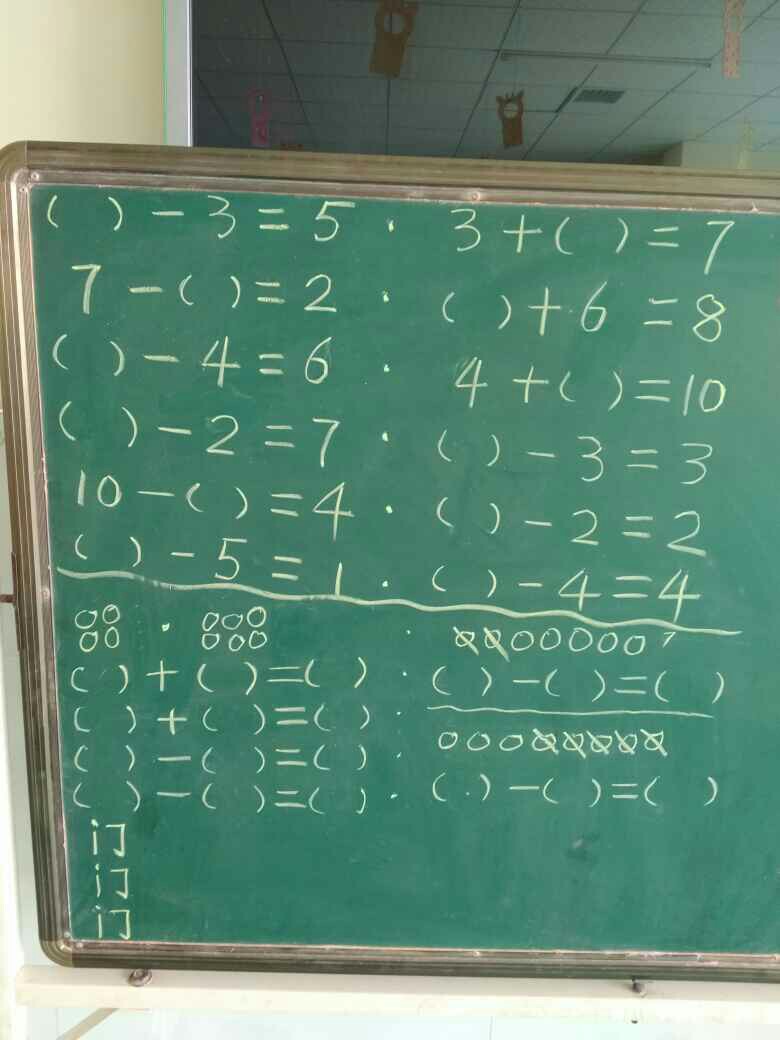 ( ) - 3 = 5 · 3 + ( ) = 7
7 - ( ) = 2 · ( ) + 6 = 8
( ) - 4 = 6 · 4 + ( ) = 10
( ) - 2 = 7 · ( ) - 3 = 3
10 - ( ) = 4 · ( ) - 2 = 2
( ) - 5 = 1 · ( ) - 4 = 4
( ) + ( ) = ( ) · ( ) - ( ) = ( )
( ) + ( ) = ( ) ·
( ) - ( ) = ( )
( ) - ( ) = ( ) · ( ) - ( ) = ( )